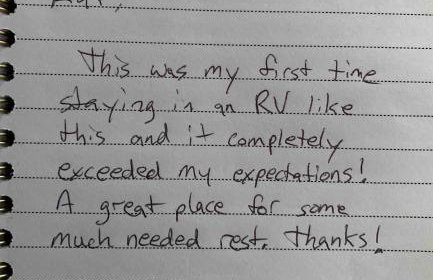 This was my first time
staying in an RV like
this and it completely
exceeded my expectations!
A great place for some
much needed rest. Thanks!